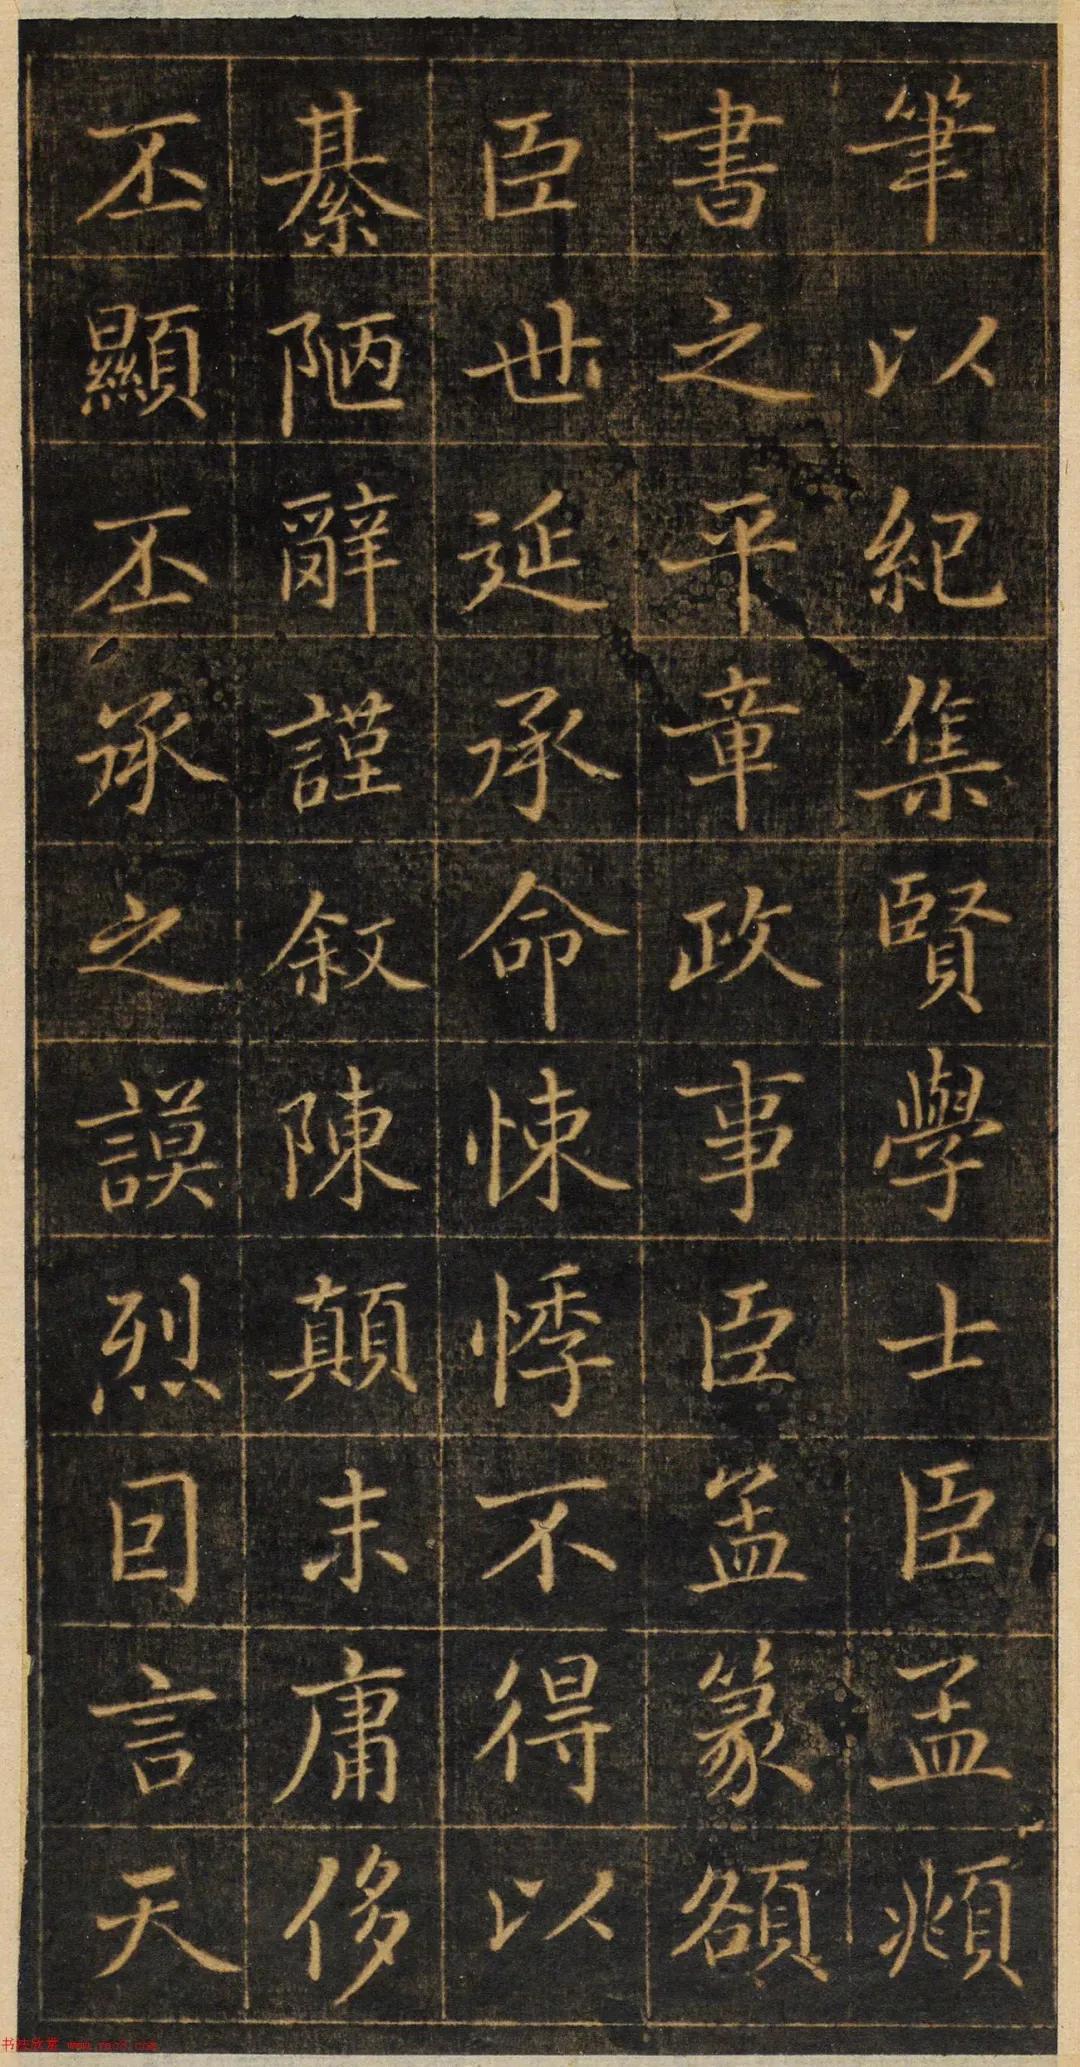 筆以紀集賢學士臣孟頫
書之平章政事臣孟篆額
臣世延承命悚悸不得以
綦陋辭謹叙陳顛末庸侈
丕顯丕承之謨烈囙言天
书法欣赏 www.yac8.com